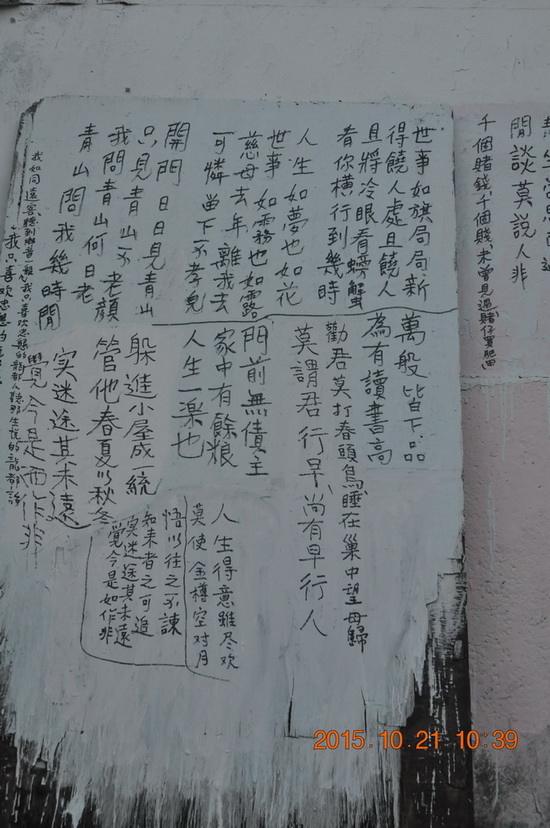 閒談莫說人非
千個賭錢,千個賤,未曾見過賭仔買肥田
世事如旗局局新
得饒人處且饒人
且將冷眼看螃蟹
看你橫行到幾時
人生如夢也如花
世事如霧也如露
慈母去年離我去
可憐當下不孝兒
開門日日見青山
只見青山不老顏
我問青山何日老
青山問我幾時閒
萬般皆下品
為有讀書高
勸君莫打春頭鳥,睡在巢中望母歸
莫謂君行早,尚有早行人
門前無債主
家中有餘粮
人生一楽也
躲進小屋成一統
管他春夏以秋冬
实迷途其未遠
覺今是而作非
人生得意雖尽欢
莫使金樽空对月
悟以往之不諫
知来者之可追
实迷途其未遠
覺今是如作非
2015.10.21 10:39